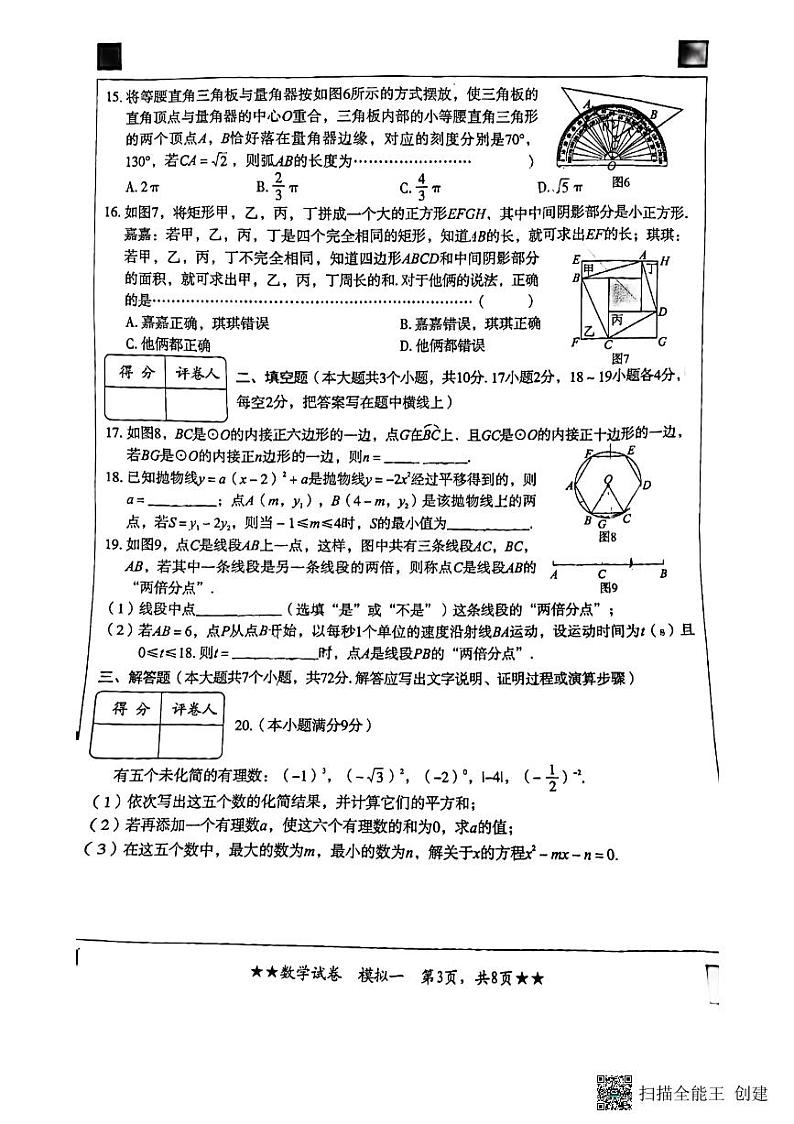 15. 将等腰直角三角板与量角器按如图6所示的方式摆放，使三角板的
直角顶点与量角器的中心O重合，三角板内部的小等腰直角三角形
的两个顶点A，B恰好落在量角器边缘，对应的刻度分别是70°，
130°，若CA = √2 ，则弧AB的长度为…………………… ）
A B O
A. 2π B. 2/3 π C. 4/3 π D. √5 π 图6
16. 如图7，将矩形甲，乙，丙，丁拼成一个大的正方形EFGH，其中中间阴影部分是小正方形.
嘉嘉：若甲，乙，丙，丁是四个完全相同的矩形，知道AB的长，就可求出EF的长；琪琪：
若甲，乙，丙，丁不完全相同，知道四边形ABCD和中间阴影部分
的面积，就可求出甲，乙，丙，丁周长的和. 对于他俩的说法，正确
的是…………………………………………………………（ ）
A. 嘉嘉正确，琪琪错误 B. 嘉嘉错误，琪琪正确
C. 他俩都正确 D. 他俩都错误
E A H
甲 丁
B
D
乙 丙
F C G
图7
得 分 评卷人
二、填空题（本大题共3个小题，共10分. 17小题2分，18～19小题各4分，
每空2分，把答案写在题中横线上）
17. 如图8，BC是⊙O的内接正六边形的一边，点G在BC上. 且GC是⊙O的内接正十边形的一边，
若BG是⊙O的内接正n边形的一边，则n = ________.
18. 已知抛物线y = a（x－2）²＋a是抛物线y = -2x²经过平移得到的，则
a = ________；点A（m，y₁），B（4－m，y₂）是该抛物线上的两
点，若S = y₁－2y₂，则当－1≤m≤4时，S的最小值为________.
F E
A O D
B G C
图8
19. 如图9，点C是线段AB上一点，这样，图中共有三条线段AC，BC，
AB，若其中一条线段是另一条线段的两倍，则称点C是线段AB的
“两倍分点”.
A C B
图9
（1）线段中点________（选填“是”或“不是”）这条线段的“两倍分点”；
（2）若AB = 6，点P从点B开始，以每秒1个单位的速度沿射线BA运动，设运动时间为t（s）且
0≤t≤18. 则t = ________时，点A是线段PB的“两倍分点”.
三、解答题（本大题共7个小题，共72分. 解答应写出文字说明、证明过程或演算步骤）
得 分 评卷人
20.（本小题满分9分）
有五个未化简的有理数：（-1）³，（-√3）²，（-2）⁰，|-4|，（-1/2）⁻².
（1）依次写出这五个数的化简结果，并计算它们的平方和；
（2）若再添加一个有理数a，使这六个有理数的和为0，求a的值；
（3）在这五个数中，最大的数为m，最小的数为n，解关于x的方程x²－mx－n = 0.
★★数学试卷 模拟一 第3页，共8页★★
扫描全能王 创建